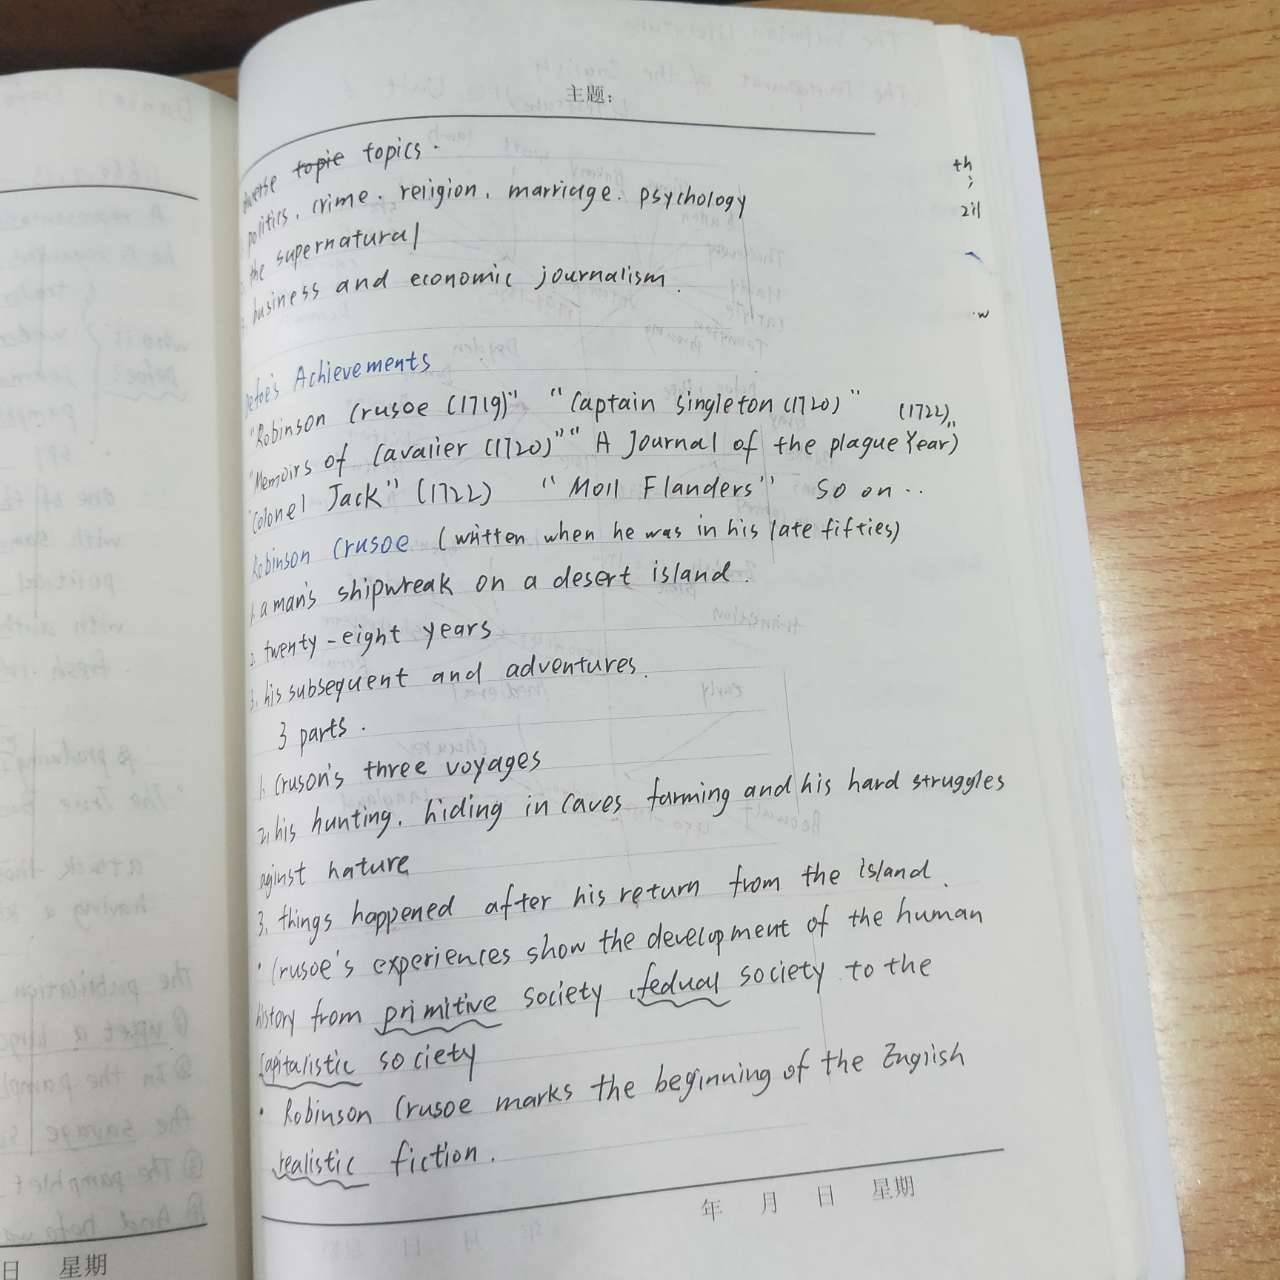 主题:
diverse topie topics.
politics, crime, religion, marriage, psychology
the supernatural
business and economic journalism.
Defoe's Achievements
"Robinson Crusoe (1719)" "Captain Singleton (1720)" (1722)"
"Memoirs of Cavalier (1720)" " A Journal of the plague Year)
"Colonel Jack" (1722) "Moll Flanders" so on..
Robinson Crusoe (written when he was in his late fifties)
1. a man's shipwreak on a desert island.
2. twenty-eight years
3. his subsequent and adventures.
3 parts.
1. Cruson's three voyages
2, his hunting, hiding in caves farming and his hard struggles
aginst nature
3. things happened after his return from the island.
· Crusoe's experiences show the development of the human
history from primitive society, fedual society to the
capitalistic society
· Robinson Crusoe marks the beginning of the English
realistic fiction.
年 月 日 星期
th
;
zil
w
日 星期